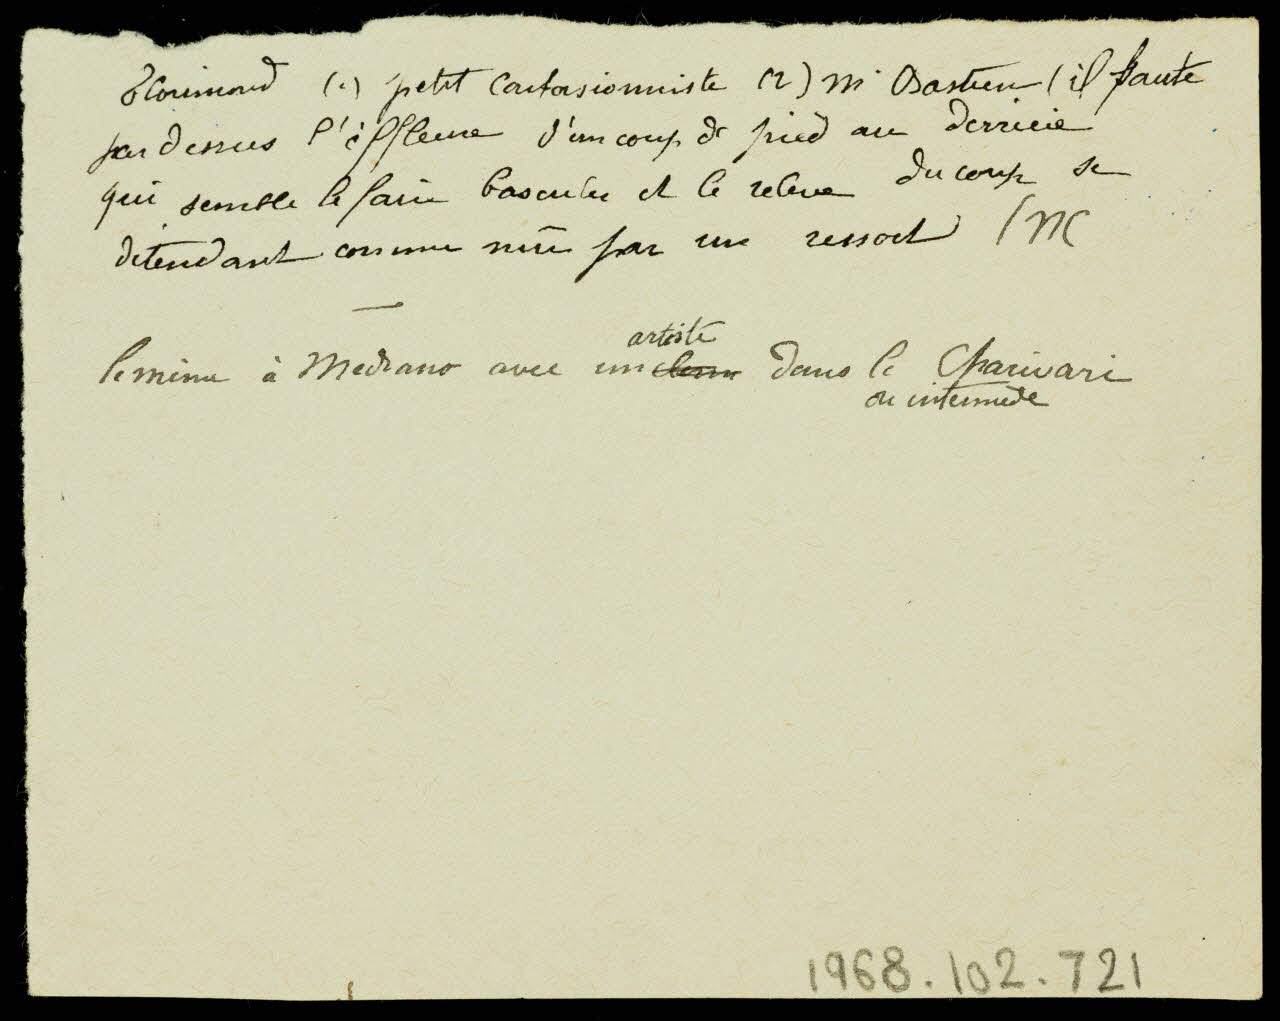 Florimond (1) petit contorsionniste (2) Mr Bastien (il saute
par dessus l'effleure d'un coup de pied au derriere
qui semble le faire basculer et le releve du coup se
détendant comme mû par un ressort / MC
—
le meme à Medrano avec un artiste ~~clown~~ dans le Charivari
ou intermède
1968.102.721